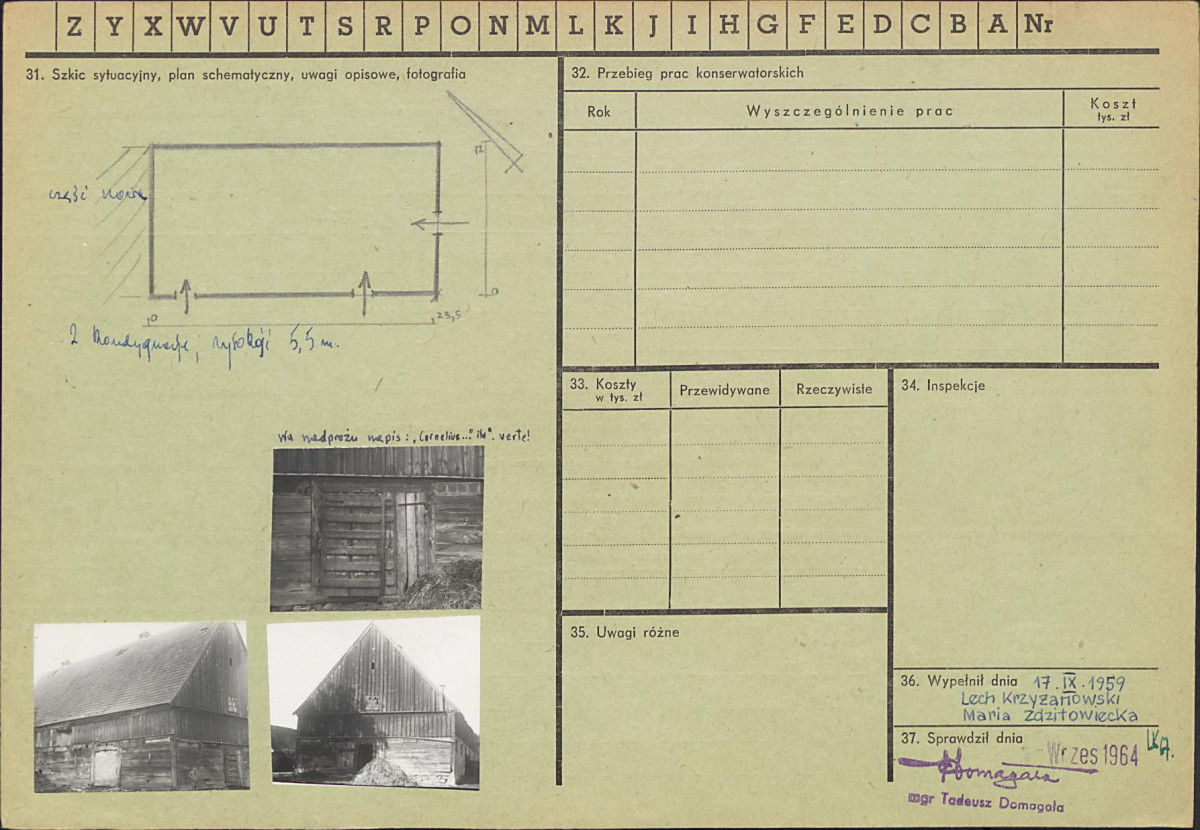 Z Y X W V U T S R P O N M L K J I H G F E D C B A Nr
31. Szkic sytuacyjny, plan schematyczny, uwagi opisowe, fotografia
część nowa
12
0
0
23,5
2 kondygnacje, wysokość 5,5 m.
Na nadprożu napis: „Cornelius..." itd. verte!
32. Przebieg prac konserwatorskich
Rok
Wyszczególnienie prac
Koszt
tys. zł
33. Koszty
w tys. zł
Przewidywane
Rzeczywiste
34. Inspekcje
35. Uwagi różne
36. Wypełnił dnia 17.IX.1959
Lech Krzyżanowski
Maria Zdzitowiecka
37. Sprawdził dnia
Wrzes 1964
Domagała
mgr Tadeusz Domagała